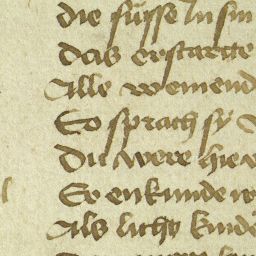 die füsse in sin
das erstartte
Alle weinend
So sprach sy
Du were hie
So enkunde
Als lichy kinde